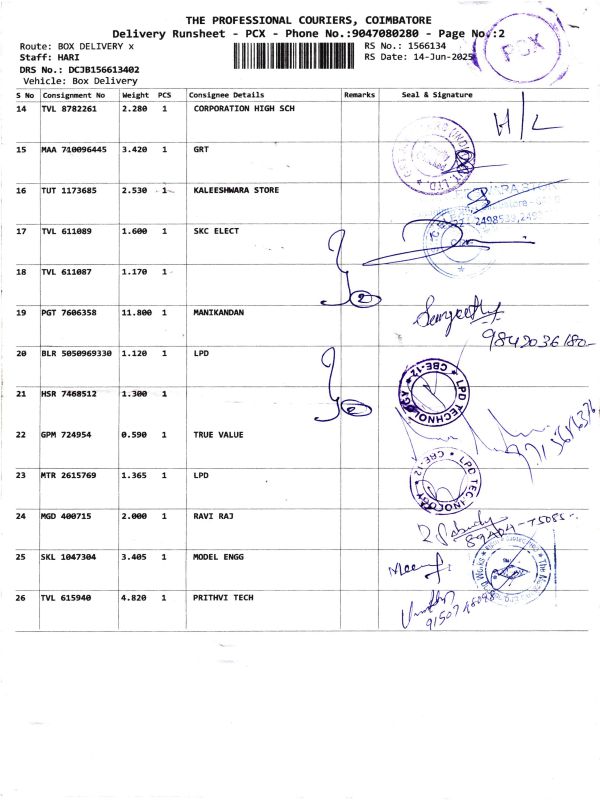 THE PROFESSIONAL COURIERS, COIMBATORE
Delivery Runsheet - PCX - Phone No.:9047080280 - Page No.:2
Route: BOX DELIVERY x RS No.: 1566134
Staff: HARI RS Date: 14-Jun-2025
DRS No.: DCJB156613402
Vehicle: Box Delivery
PCX
S No Consignment No Weight PCS Consignee Details Remarks Seal & Signature
14 TVL 8782261 2.280 1 CORPORATION HIGH SCH H/L
15 MAA 710096445 3.420 1 GRT
16 TUT 1173685 2.530 1 KALEESHWARA STORE
17 TVL 611089 1.600 1 SKC ELECT
18 TVL 611087 1.170 1 2
19 PGT 7606358 11.800 1 MANIKANDAN Sangeetha
9842036180
20 BLR 5050969330 1.120 1 LPD
21 HSR 7468512 1.300 1 2 CBE-12 LPD TECHNOLOGY
22 GPM 724954 0.590 1 TRUE VALUE
23 MTR 2615769 1.365 1 LPD CBE-12 LPD TECHNOLOGY
24 MGD 400715 2.000 1 RAVI RAJ
25 SKL 1047304 3.405 1 MODEL ENGG
26 TVL 615940 4.820 1 PRITHVI TECH